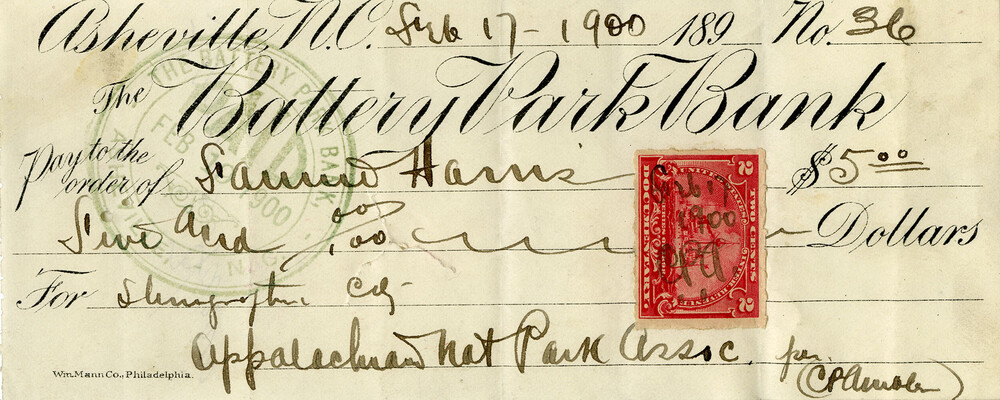 Asheville, N.C. Feb 17 - 1900 189 No. 36
The Battery Park Bank
Pay to the order of Fannie Harris $5.00
Five and 00/100 Dollars
For
Appalachian Nat Park Assoc. per
Wm. Mann Co., Philadelphia.
THE BATTERY PARK BANK
PAID
FEB 1900
N.C.
2 2
UNITED STATES
INTERNAL REVENUE
TWO CENTS
DOCUMENTARY
Feb. 17
1900